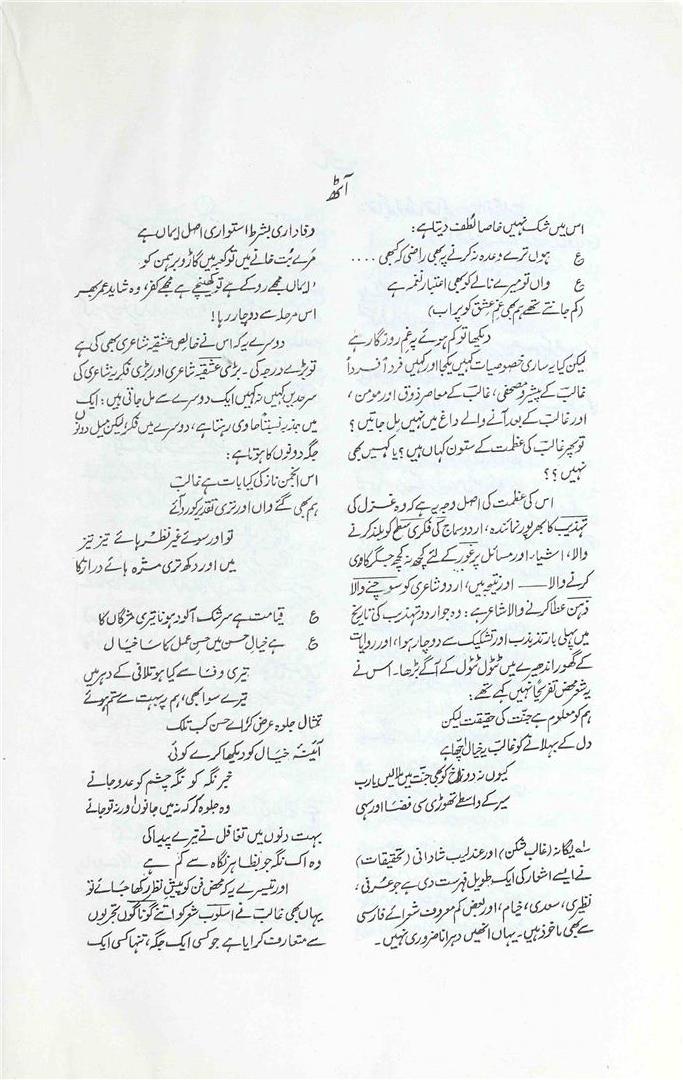 آٹھ
اس میں شک نہیں خاصا لُطف دیتا ہے:
ع ہوں ترے وعدہ نہ کرنے پر بھی راضی کہ کبھی ....
ع واں تو میرے نالے کو بھی اعتبارِ نغمہ ہے
(کم جانتے تھے ہم بھی غمِ عشق کو پر اب)
دیکھا تو کم ہوئے پہ غمِ روزگار ہے
لیکن کیا یہ ساری خصوصیات کہیں یکجا اور کہیں فرداً فرداً
غالب کے پیشرو مصحفی، غالب کے معاصر ذوق اور مومن،
اور غالب کے بعد آنے والے داغ میں نہیں مل جاتیں؟
تو پھر غالب کی عظمت کے ستون کہاں ہیں؟ یا کہیں بھی
نہیں؟؟
اس کی عظمت کی اصل وجہ یہ ہے کہ وہ غزل کی
تہذیب کا بھرپور نمائندہ، اردو سماج کی فکری سطح کو بلند کرنے
والا، اشیاء اور مسائل پر غور کے لئے کچھ نہ کچھ جگر کاوی
کرنے والا —— اور نتیجہ میں، اردو شاعری کو سوچنے والا
ذہن عطا کرنے والا شاعر ہے: وہ جو اردو تہذیب کی تاریخ
میں پہلی بار تذبذب اور تشکیک سے دوچار ہوا، اور روایات
کے گھور اندھیرے میں ٹٹول ٹٹول کے آگے بڑھا۔ اس نے
یہ شعر محض تفریحاً نہیں کہے تھے:
ہم کو معلوم ہے جنت کی حقیقت لیکن
دل کے بہلانے کو غالب یہ خیال اچھا ہے
کیوں نہ دوزخ کو بھی جنت میں ملا لیں یارب
سیر کے واسطے تھوڑی سی فضا اور سہی
لہ یگانہ (غالب شکن) اور عندلیب شادانی (تحقیقات)
نے ایسے اشعار کی ایک طویل فہرست دی ہے جو عرفی،
نظیری، سعدی، خیام، اور بعض کم معروف شعرائے فارسی
سے بھی ماخوذ ہیں۔ یہاں انھیں دہرانا ضروری نہیں۔
وفاداری بشرط استواری اصل ایماں ہے
مَرے بُت خانے میں تو کعبہ میں گاڑو برہمن کو
ایماں مجھے روکے ہے تو کھینچے ہے مجھے کفر، وہ شاید عمر بھر
اس مرحلہ سے دوچار رہا!
دوسرے یہ کہ اس نے خالص عشقیہ شاعری بھی کی ہے
تو بڑے درجہ کی۔ بڑی عشقیہ شاعری اور بڑی فکریہ شاعری کی
سرحدیں کہیں نہ کہیں ایک دوسرے سے مل جاتی ہیں: ایک
میں جذبہ نسبتاً حاوی رہتا ہے، دوسرے میں فکر؛ لیکن میل دونوں
جگہ دونوں کا ہوتا ہے:
اس انجمن ناز کی کیا بات ہے غالب
ہم بھی گئے واں اور تری تقدیر کو رو آئے
تو اور سوئے غیر نظر ہائے تیز تیز
میں اور دکھ تری مژہ ہائے دراز کا
ع قیامت ہے سرشک آلود ہونا تیری مژگاں کا
ع ہے خیالِ حسن میں حسنِ عمل کا سا خیال
تیری وفا سے کیا ہو تلافی کہ دہر میں
تیرے سوا بھی، ہم پر بہت سے ستم ہوئے
تمثال جلوہ عرض کر اے حسن کب تلک
آئینۂ خیال کو دیکھا کرے کوئی
خبر نگہ کو نگہ چشم کو عدو جانے
وہ جلوہ کر کہ نہ میں جانوں اور نہ تو جانے
بہت دنوں میں تغافل نے تیرے پیدا کی
وہ اک نگہ جو بظاہر نگاہ سے کم ہے
اور تیسرے یہ کہ محض فن کو پیش نظر رکھا جائے تو
یہاں بھی غالب نے اسلوب شعر کو اتنے گوناگوں تجربوں
سے متعارف کرایا ہے جو کسی ایک جگہ، تنہا کسی ایک